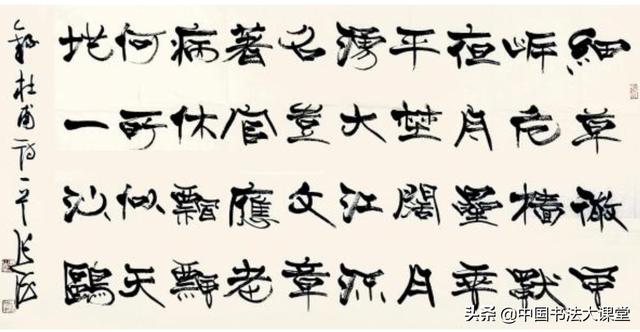 細草微風
岸危檣獨
夜舟星垂
平埜闊月
湧大江流
名豈文章
著官應老
病休飄飄
何所似天
地一沙鷗
錄杜甫詩一首 張海
头条 @中国书法大课堂